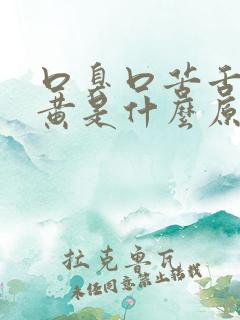 口臭口苦舌
黄是什麼原
拉克魯瓦
未经同意禁止转载